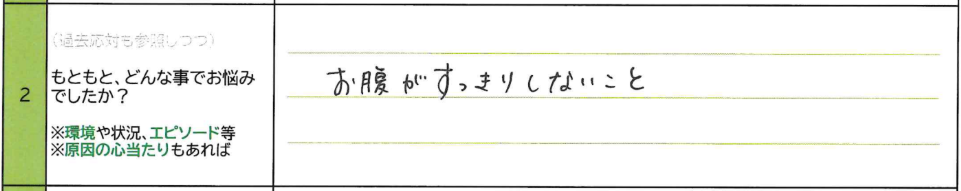 (過去応対も参照しつつ)
2
もともと、どんな事でお悩み
でしたか？
※環境や状況、エピソード等
※原因の心当たりもあれば
お腹がすっきりしないこと